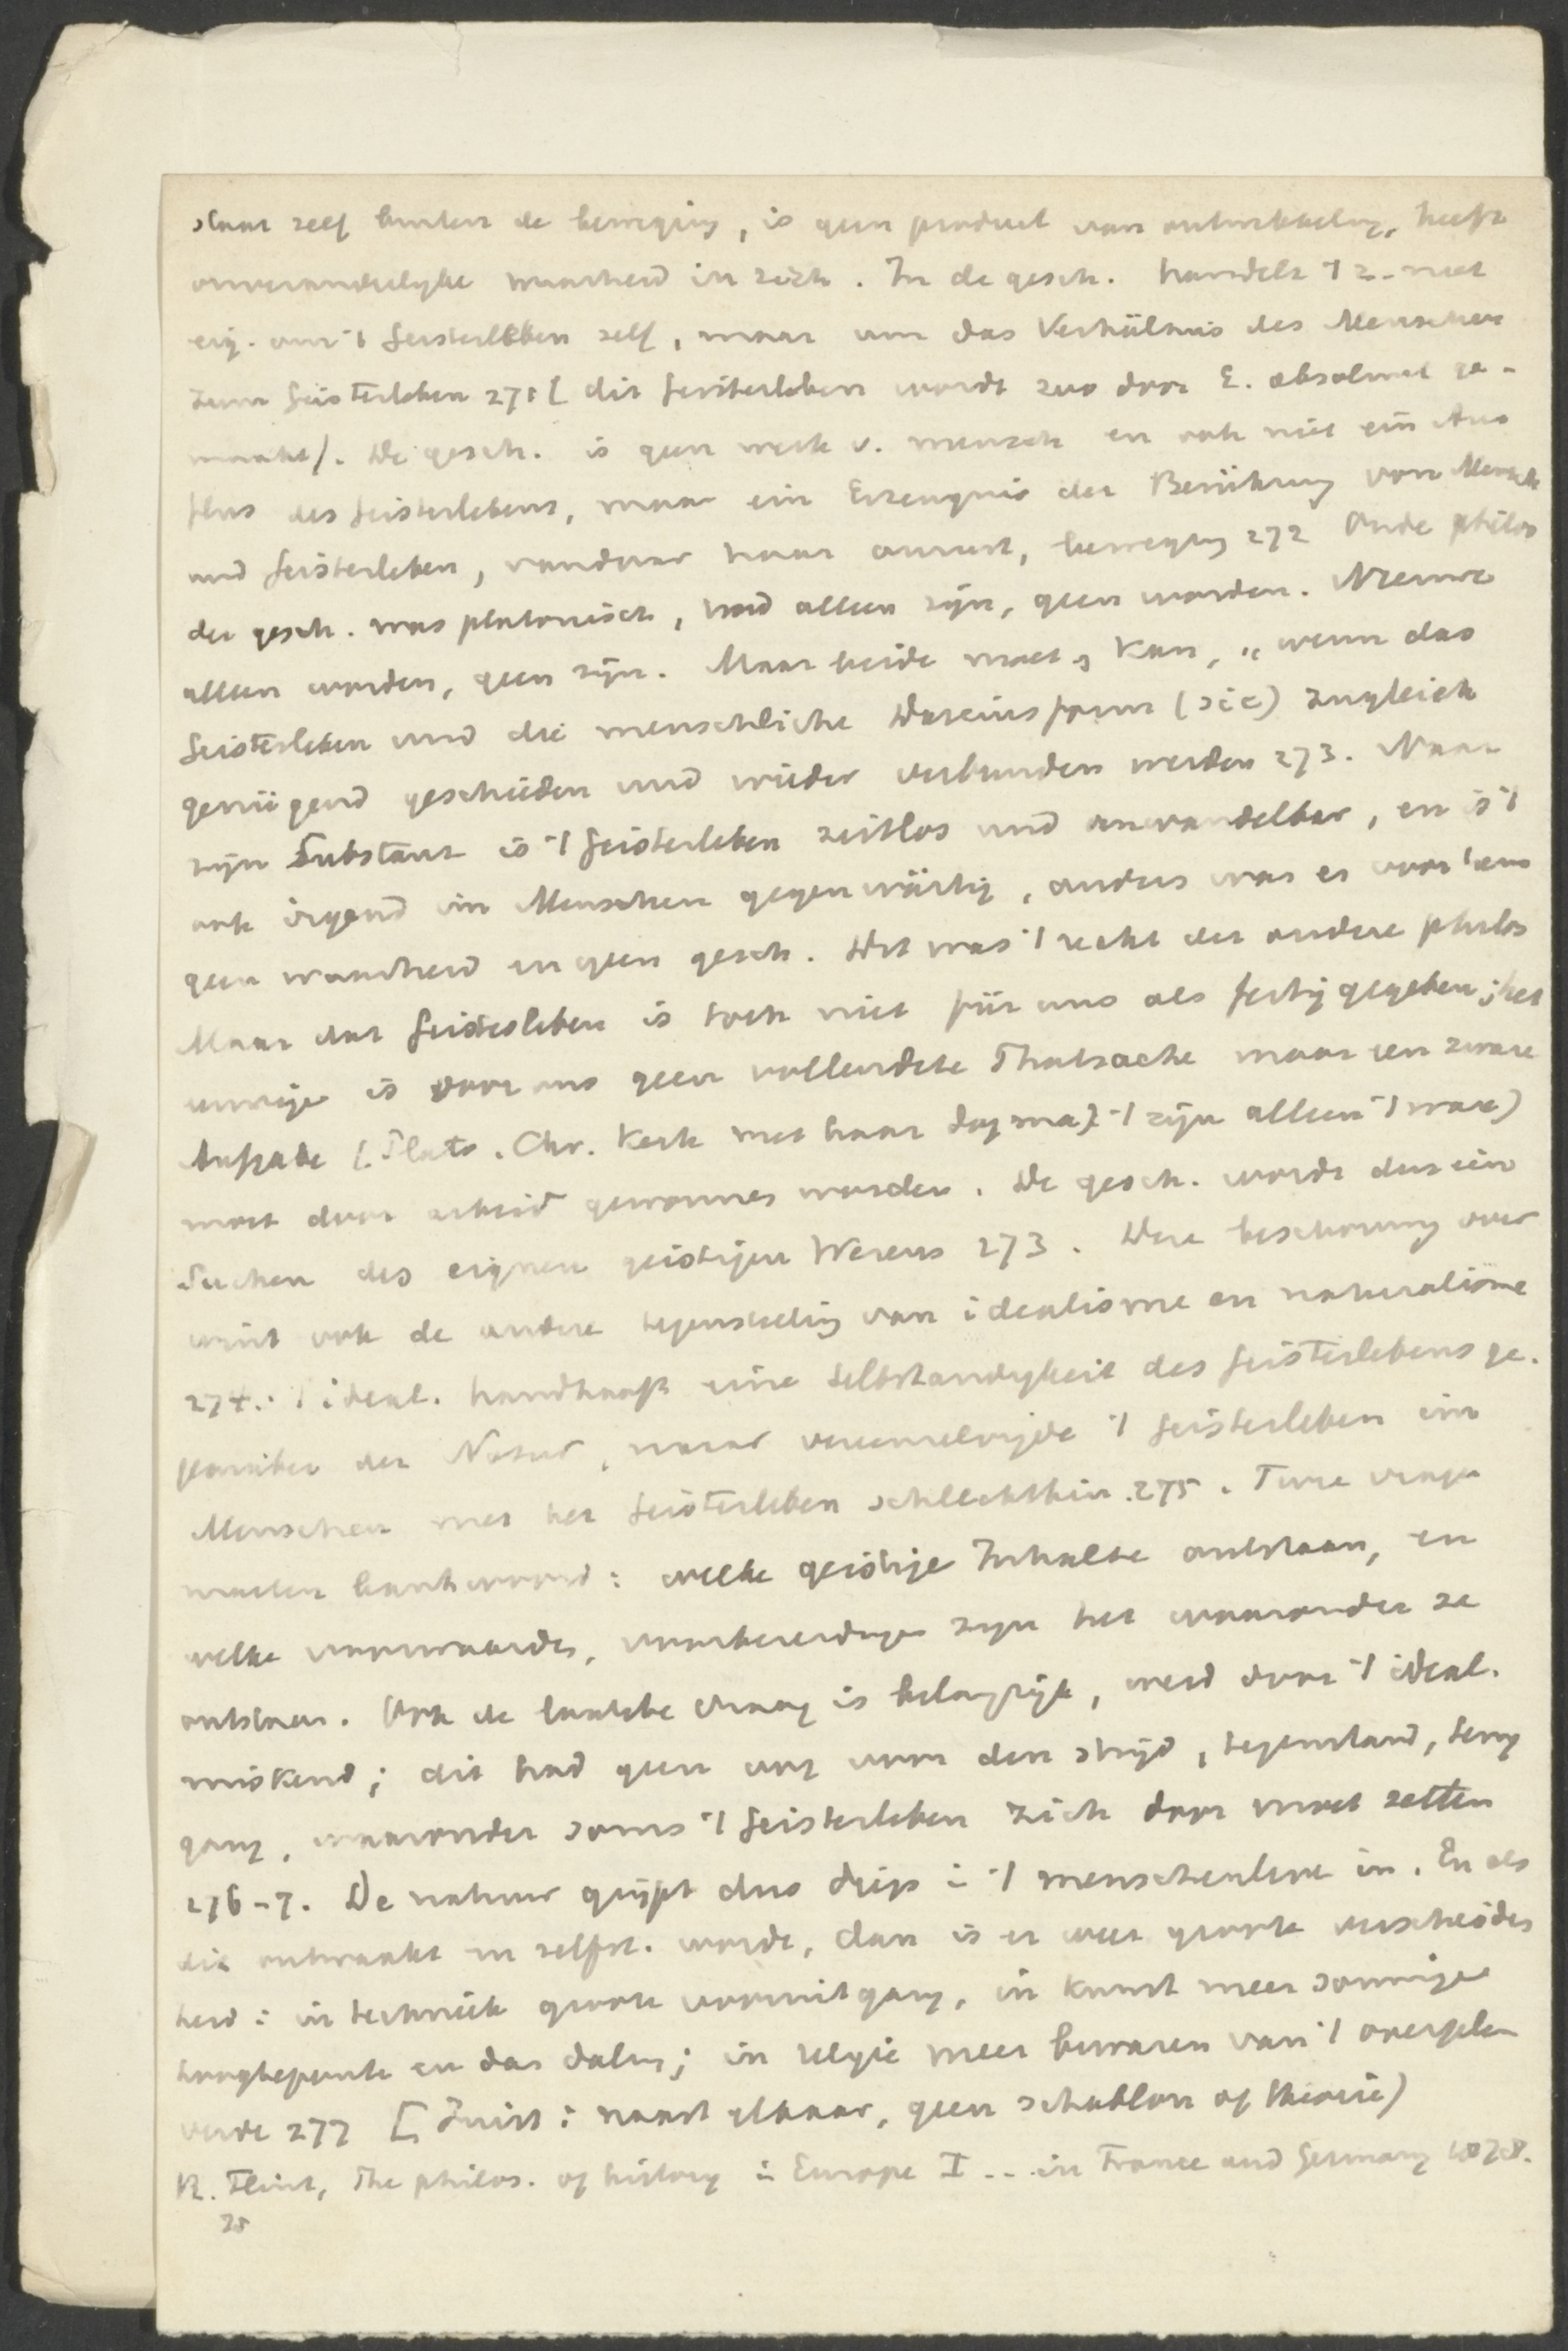 staat zelf buiten de beweging, is geen product van ontwikkeling, heeft
onveranderlyke waarheid in zich. In de gesch. handelt 't z. niet
eig. om 't Geistesleben zelf, maar um das Verhältnis des Menschen
zum Geistesleben 271 [dit Geistesleben wordt zoo door E. absoluut ge-
maakt]. De gesch. is geen werk v. mensch en ook niet ein Aus
fluss des Geisteslebens, maar ein Erzeugnis der Berührung von Mensch
und Geistesleben, vandaar haar onrust, beweging 272 Oude philos
der gesch. was platonisch, had alleen zijn, geen worden. Nieuwe
alleen worden, geen zijn. Maar beide moet, kan, „wenn das
Geistesleben und die menschliche Daseinsform (sic) zugleich
genügend geschieden und wieder verbunden werden 273. Naar
zijn Substanz is 't Geistesleben zeitlos und unwandelbar, en is 't
ook irgend im Menschen gegenwärtig, anders was er voor hem
geen waarheid en geen gesch. Dit was 't recht der oudere philos
Maar dat Geistesleben is toch niet für uns als fertig gegeben; het
eeuwige is voor ons geen vollendete Thatsache maar een zware
Aufgabe (Plato. Chr. Kerk met haar dogma) 't zijn alleen 't ware)
moet door arbeid gewonnen worden. De gesch. wordt dus ein
Suchen des eignen geistigen Wesens 273. Deze beschouwing over
wint ook de andere tegenstelling van idealisme en naturalisme
274.: 't ideal. handhaaft eine Selbständigkeit des Geisteslebens ge-
genüber der Natur, maar vereenzelvigde 't Geistesleben im
Menschen met het Geistesleben schlechthin 275. Twee vragen
moeten beantwoord: welke geistige Inhalte ontstaan, en
welke voorwaarden, voorbereidingen zijn het waaronder ze
ontstaan. Ook de laatste vraag is belangrijk, werd door 't ideal.
miskend; dit had geen oog voor den strijd, tegenstand, terug
gang, waaronder soms 't Geistesleben zich door moet zetten
276-7. De natuur grijpt dus diep in 't menschenleven in. En als
die ontwaakt en zelfst. wordt, dan is er weer groote verscheiden
heid: in techniek groote vooruitgang, in kunst meer sommige
hoogtepunten en dan daling; in religie meer bewaren van 't overgele
verde 277 [Juist: naast elkaar, geen schablon of theorie)
R. Flint, The philos. of history in Europe I ... in France and Germany 1878.